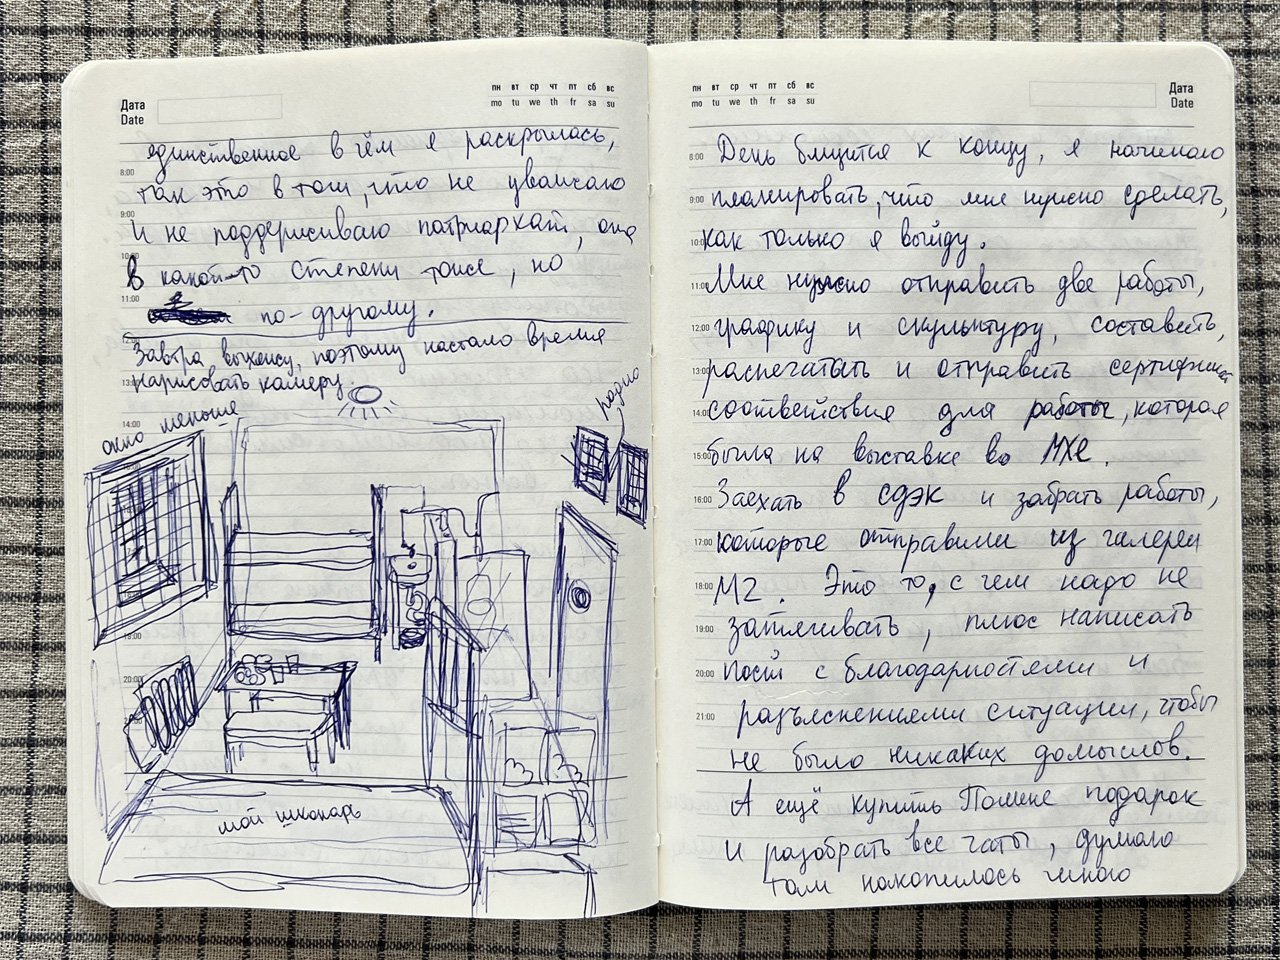 Дата
Date
пн вт ср чт пт сб вс
mo tu we th fr sa su
единственное в чём я раскрылась,
8:00
так это в том, что не уважаю
9:00
и не поддерживаю патриархат, она
10:00
в какой-то степени тоже, но
11:00
по-другому.
12:00
Завтра выхожу, поэтому настало время
13:00
нарисовать камеру.
14:00
окно меньше
радио
19:00
20:00
мой шконарь
пн вт ср чт пт сб вс
mo tu we th fr sa su
Дата
Date
8:00 День близится к концу, я начинаю
9:00 планировать, что мне нужно сделать,
10:00 как только я выйду.
11:00 Мне нужно отправить две работы,
12:00 графику и скульптуру, составить,
13:00 распечатать и отправить сертификат
14:00 соотвействия для работы, которая
15:00 была на выставке во МХЕ.
16:00 Заехать в сдэк и забрать работы,
17:00 которые отправили из галереи
18:00 М2. Это то, с чем надо не
19:00 затягивать, плюс написать
20:00 пост с благодарностями и
21:00 разъяснениями ситуации, чтобы
не было никаких домыслов.
А ещё купить Полине подарок
и разобрать все чаты, думаю
там накопилось много